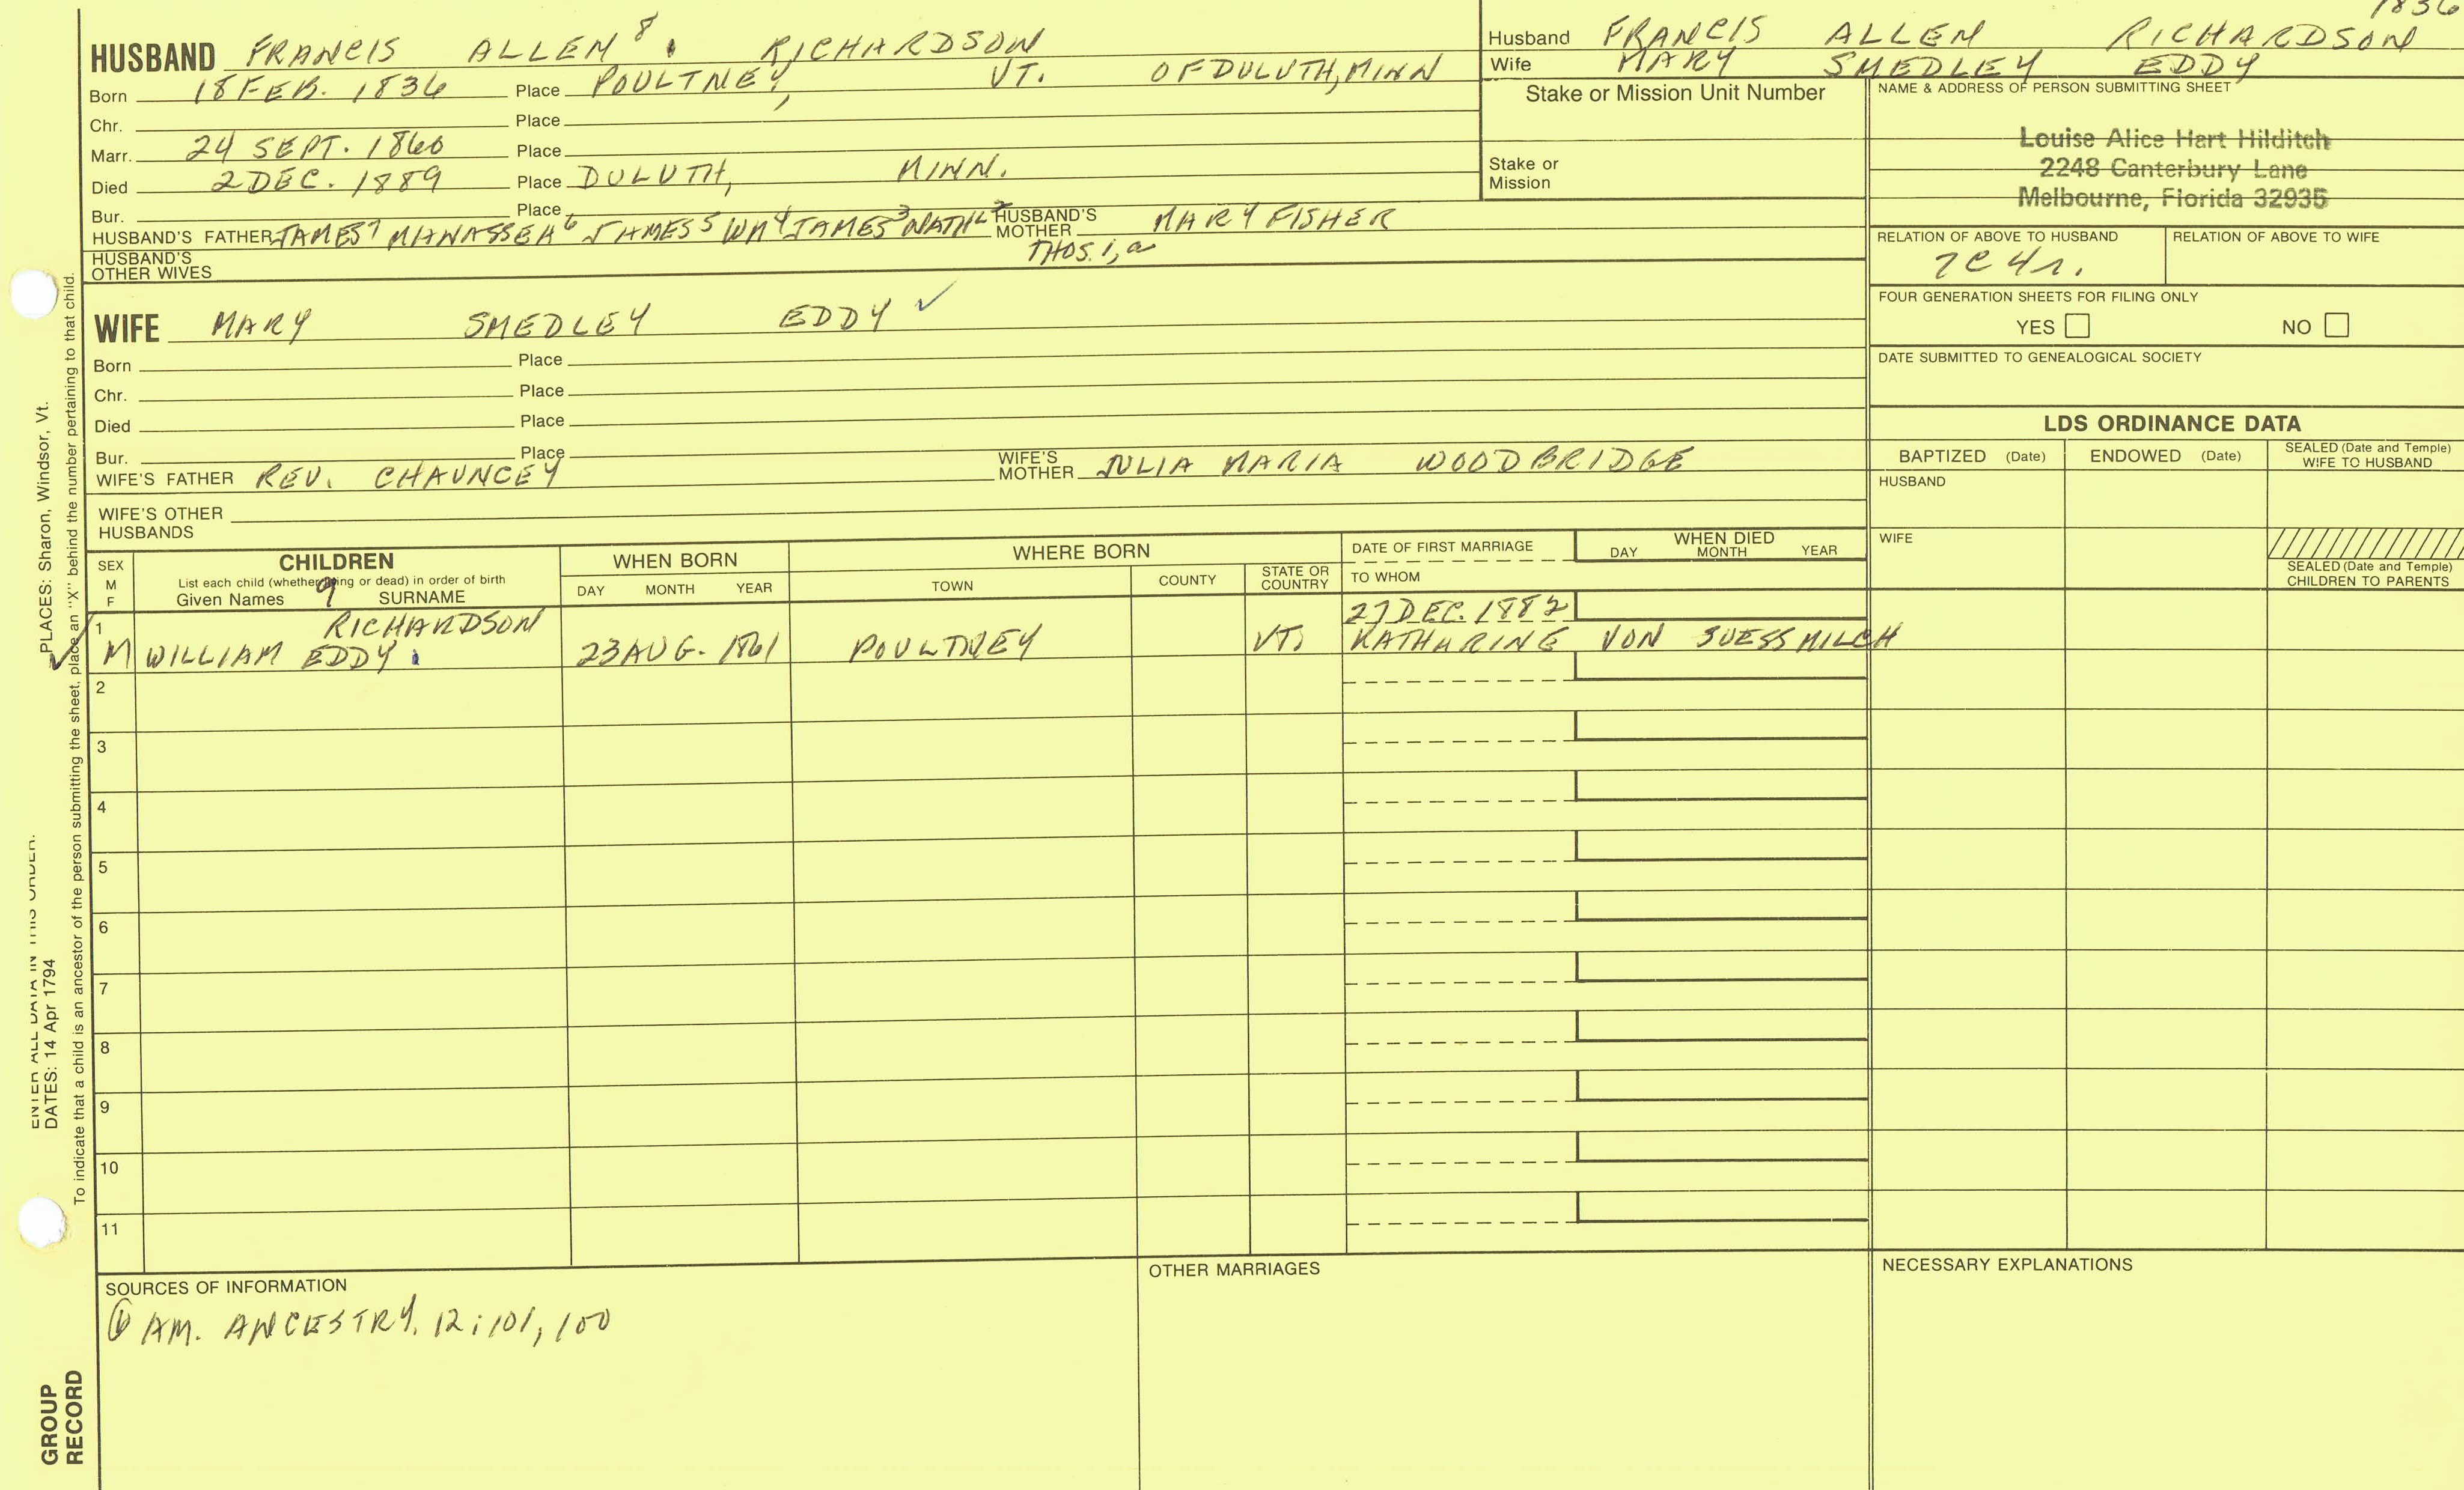 1836
HUSBAND FRANCIS ALLEN 8. RICHARDSON
Born 18 FEB. 1836 Place POULTNEY, VT. OF DULUTH, MINN
Chr. Place
Marr. 24 SEPT. 1860 Place
Died 2 DEC. 1889 Place DULUTH, MINN.
Bur. Place
HUSBAND'S FATHER JAMES 7 MANASSEH 6 JAMES 5 WM 4 JAMES 3 NATHL 2 HUSBAND'S MOTHER MARY FISHER
THOS. 1, a
HUSBAND'S OTHER WIVES
Husband FRANCIS ALLEN RICHARDSON
Wife MARY SMEDLEY EDDY
Stake or Mission Unit Number
Stake or
Mission
NAME & ADDRESS OF PERSON SUBMITTING SHEET
Louise Alice Hart Hilditch
2248 Canterbury Lane
Melbourne, Florida 32935
RELATION OF ABOVE TO HUSBAND RELATION OF ABOVE TO WIFE
7C 4r.
FOUR GENERATION SHEETS FOR FILING ONLY
YES NO
DATE SUBMITTED TO GENEALOGICAL SOCIETY
WIFE MARY SMEDLEY EDDY ✓
Born Place
Chr. Place
Died Place
Bur. Place
WIFE'S FATHER REV. CHAUNCEY WIFE'S MOTHER JULIA MARIA WOODBRIDGE
WIFE'S OTHER
HUSBANDS
LDS ORDINANCE DATA
BAPTIZED (Date) ENDOWED (Date) SEALED (Date and Temple) WIFE TO HUSBAND
HUSBAND
WIFE
SEALED (Date and Temple)
CHILDREN TO PARENTS
SEX M F CHILDREN WHEN BORN WHERE BORN DATE OF FIRST MARRIAGE WHEN DIED
List each child (whether living or dead) in order of birth
Given Names 9 SURNAME DAY MONTH YEAR TOWN COUNTY STATE OR COUNTRY TO WHOM DAY MONTH YEAR
1 RICHARDSON 27 DEC. 1882
✓ M WILLIAM EDDY. 23 AUG. 1861 POULTNEY VT. KATHARINE VON SUESSMILCH
2
3
4
5
6
7
8
9
10
11
SOURCES OF INFORMATION
① AM. ANCESTRY, 12:101, 100
OTHER MARRIAGES
NECESSARY EXPLANATIONS
ENTER ALL DATA IN THIS ORDER:
DATES: 14 Apr 1794
PLACES: Sharon, Windsor, Vt.
To indicate that a child is an ancestor of the person submitting the sheet, place an "X" behind the number pertaining to that child.
GROUP
RECORD